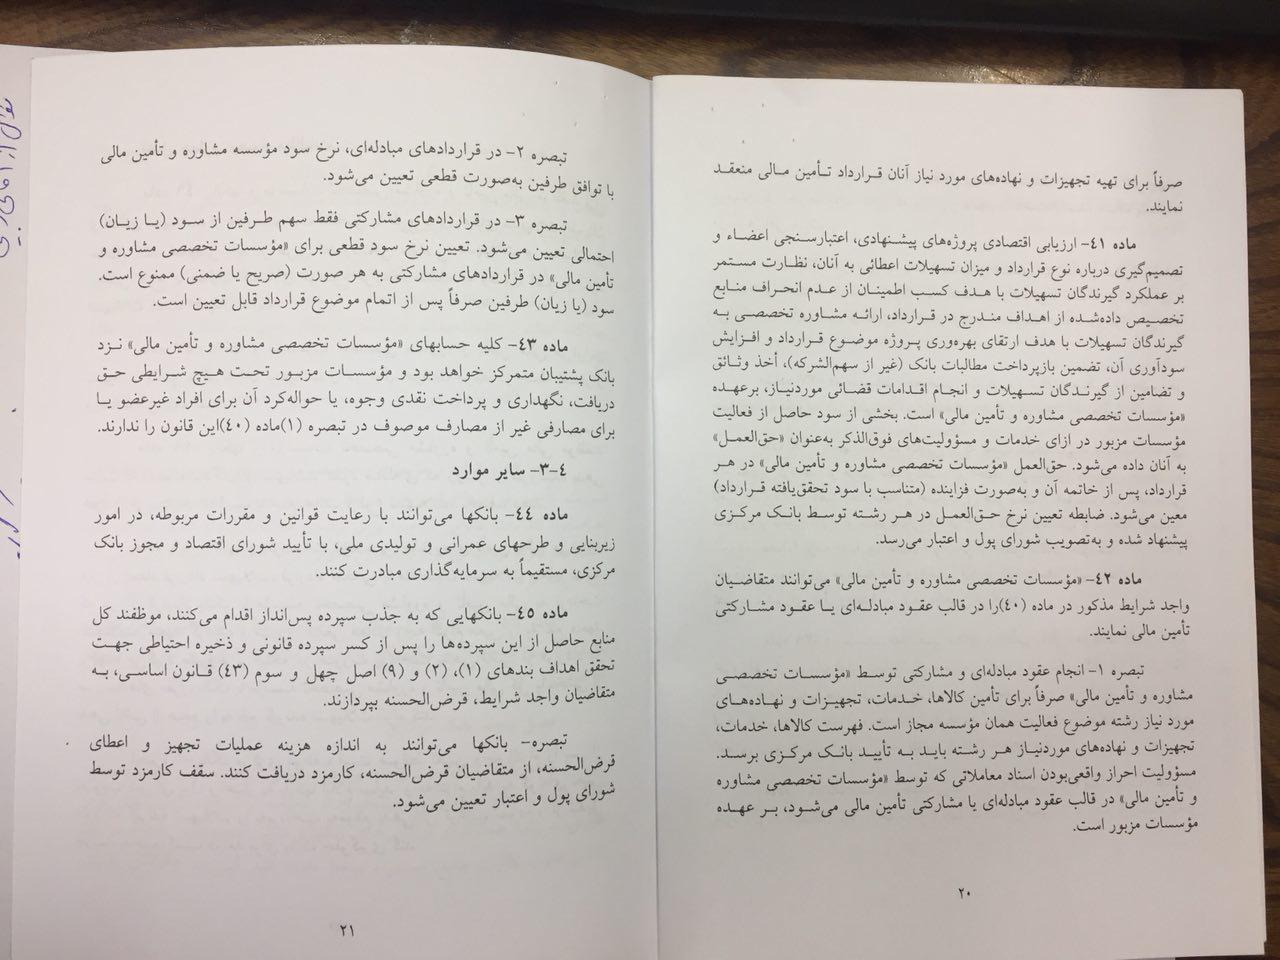 صرفاً برای تهیه تجهیزات و نهاده‌های مورد نیاز آنان قرارداد تأمین مالی منعقد
نمایند.
ماده ٤١- ارزیابی اقتصادی پروژه‌های پیشنهادی، اعتبارسنجی اعضاء و
تصمیم‌گیری درباره نوع قرارداد و میزان تسهیلات اعطائی به آنان، نظارت مستمر
بر عملکرد گیرندگان تسهیلات با هدف کسب اطمینان از عدم انحراف منابع
تخصیص داده‌شده از اهداف مندرج در قرارداد، ارائه مشاوره تخصصی به
گیرندگان تسهیلات با هدف ارتقای بهره‌وری پروژه موضوع قرارداد و افزایش
سودآوری آن، تضمین بازپرداخت مطالبات بانک (غیر از سهم‌الشرکه)، أخذ وثائق
و تضامین از گیرندگان تسهیلات و انجام اقدامات قضائی موردنیاز، برعهده
«مؤسسات تخصصی مشاوره و تأمین مالی» است. بخشی از سود حاصل از فعالیت
مؤسسات مزبور در ازای خدمات و مسؤولیت‌های فوق‌الذکر به‌عنوان «حق‌العمل»
به آنان داده می‌شود. حق‌العمل «مؤسسات تخصصی مشاوره و تأمین مالی» در هر
قرارداد، پس از خاتمه آن و به‌صورت فزاینده (متناسب با سود تحقق‌یافته قرارداد)
معین می‌شود. ضابطه تعیین نرخ حق‌العمل در هر رشته توسط بانک مرکزی
پیشنهاد شده و به‌تصویب شورای پول و اعتبار می‌رسد.
ماده ٤٢- «مؤسسات تخصصی مشاوره و تأمین مالی» می‌توانند متقاضیان
واجد شرایط مذکور در ماده (٤٠)را در قالب عقود مبادله‌ای یا عقود مشارکتی
تأمین مالی نمایند.
تبصره ١- انجام عقود مبادله‌ای و مشارکتی توسط «مؤسسات تخصصی
مشاوره و تأمین مالی» صرفاً برای تأمین کالاها، خدمات، تجهیزات و نهاده‌های
مورد نیاز رشته موضوع فعالیت همان مؤسسه مجاز است. فهرست کالاها، خدمات،
تجهیزات و نهاده‌های موردنیاز هر رشته باید به تأیید بانک مرکزی برسد.
مسؤولیت احراز واقعی‌بودن اسناد معاملاتی که توسط «مؤسسات تخصصی مشاوره
و تأمین مالی» در قالب عقود مبادله‌ای یا مشارکتی تأمین مالی می‌شود، بر عهده
مؤسسات مزبور است.
٢٠
تبصره ٢- در قراردادهای مبادله‌ای، نرخ سود مؤسسه مشاوره و تأمین مالی
با توافق طرفین به‌صورت قطعی تعیین می‌شود.
تبصره ٣- در قراردادهای مشارکتی فقط سهم طرفین از سود (یا زیان)
احتمالی تعیین می‌شود. تعیین نرخ سود قطعی برای «مؤسسات تخصصی مشاوره و
تأمین مالی» در قراردادهای مشارکتی به هر صورت (صریح یا ضمنی) ممنوع است.
سود (یا زیان) طرفین صرفاً پس از اتمام موضوع قرارداد قابل تعیین است.
ماده ٤٣- کلیه حسابهای «مؤسسات تخصصی مشاوره و تأمین مالی» نزد
بانک پشتیبان متمرکز خواهد بود و مؤسسات مزبور تحت هیچ شرایطی حق
دریافت، نگهداری و پرداخت نقدی وجوه، یا حواله‌کرد آن برای افراد غیرعضو یا
برای مصارفی غیر از مصارف موصوف در تبصره (١)ماده (٤٠)این قانون را ندارند.
٤-٣- سایر موارد
ماده ٤٤- بانکها می‌توانند با رعایت قوانین و مقررات مربوطه، در امور
زیربنایی و طرحهای عمرانی و تولیدی ملی، با تأیید شورای اقتصاد و مجوز بانک
مرکزی، مستقیماً به سرمایه‌گذاری مبادرت کنند.
ماده ٤٥- بانکهایی که به جذب سپرده پس‌انداز اقدام می‌کنند، موظفند کل
منابع حاصل از این سپرده‌ها را پس از کسر سپرده قانونی و ذخیره احتیاطی جهت
تحقق اهداف بندهای (١)، (٢) و (٩) اصل چهل و سوم (٤٣) قانون اساسی، به
متقاضیان واجد شرایط، قرض‌الحسنه بپردازند.
تبصره- بانکها می‌توانند به اندازه هزینه عملیات تجهیز و اعطای
قرض‌الحسنه، از متقاضیان قرض‌الحسنه، کارمزد دریافت کنند. سقف کارمزد توسط
شورای پول و اعتبار تعیین می‌شود.
٢١